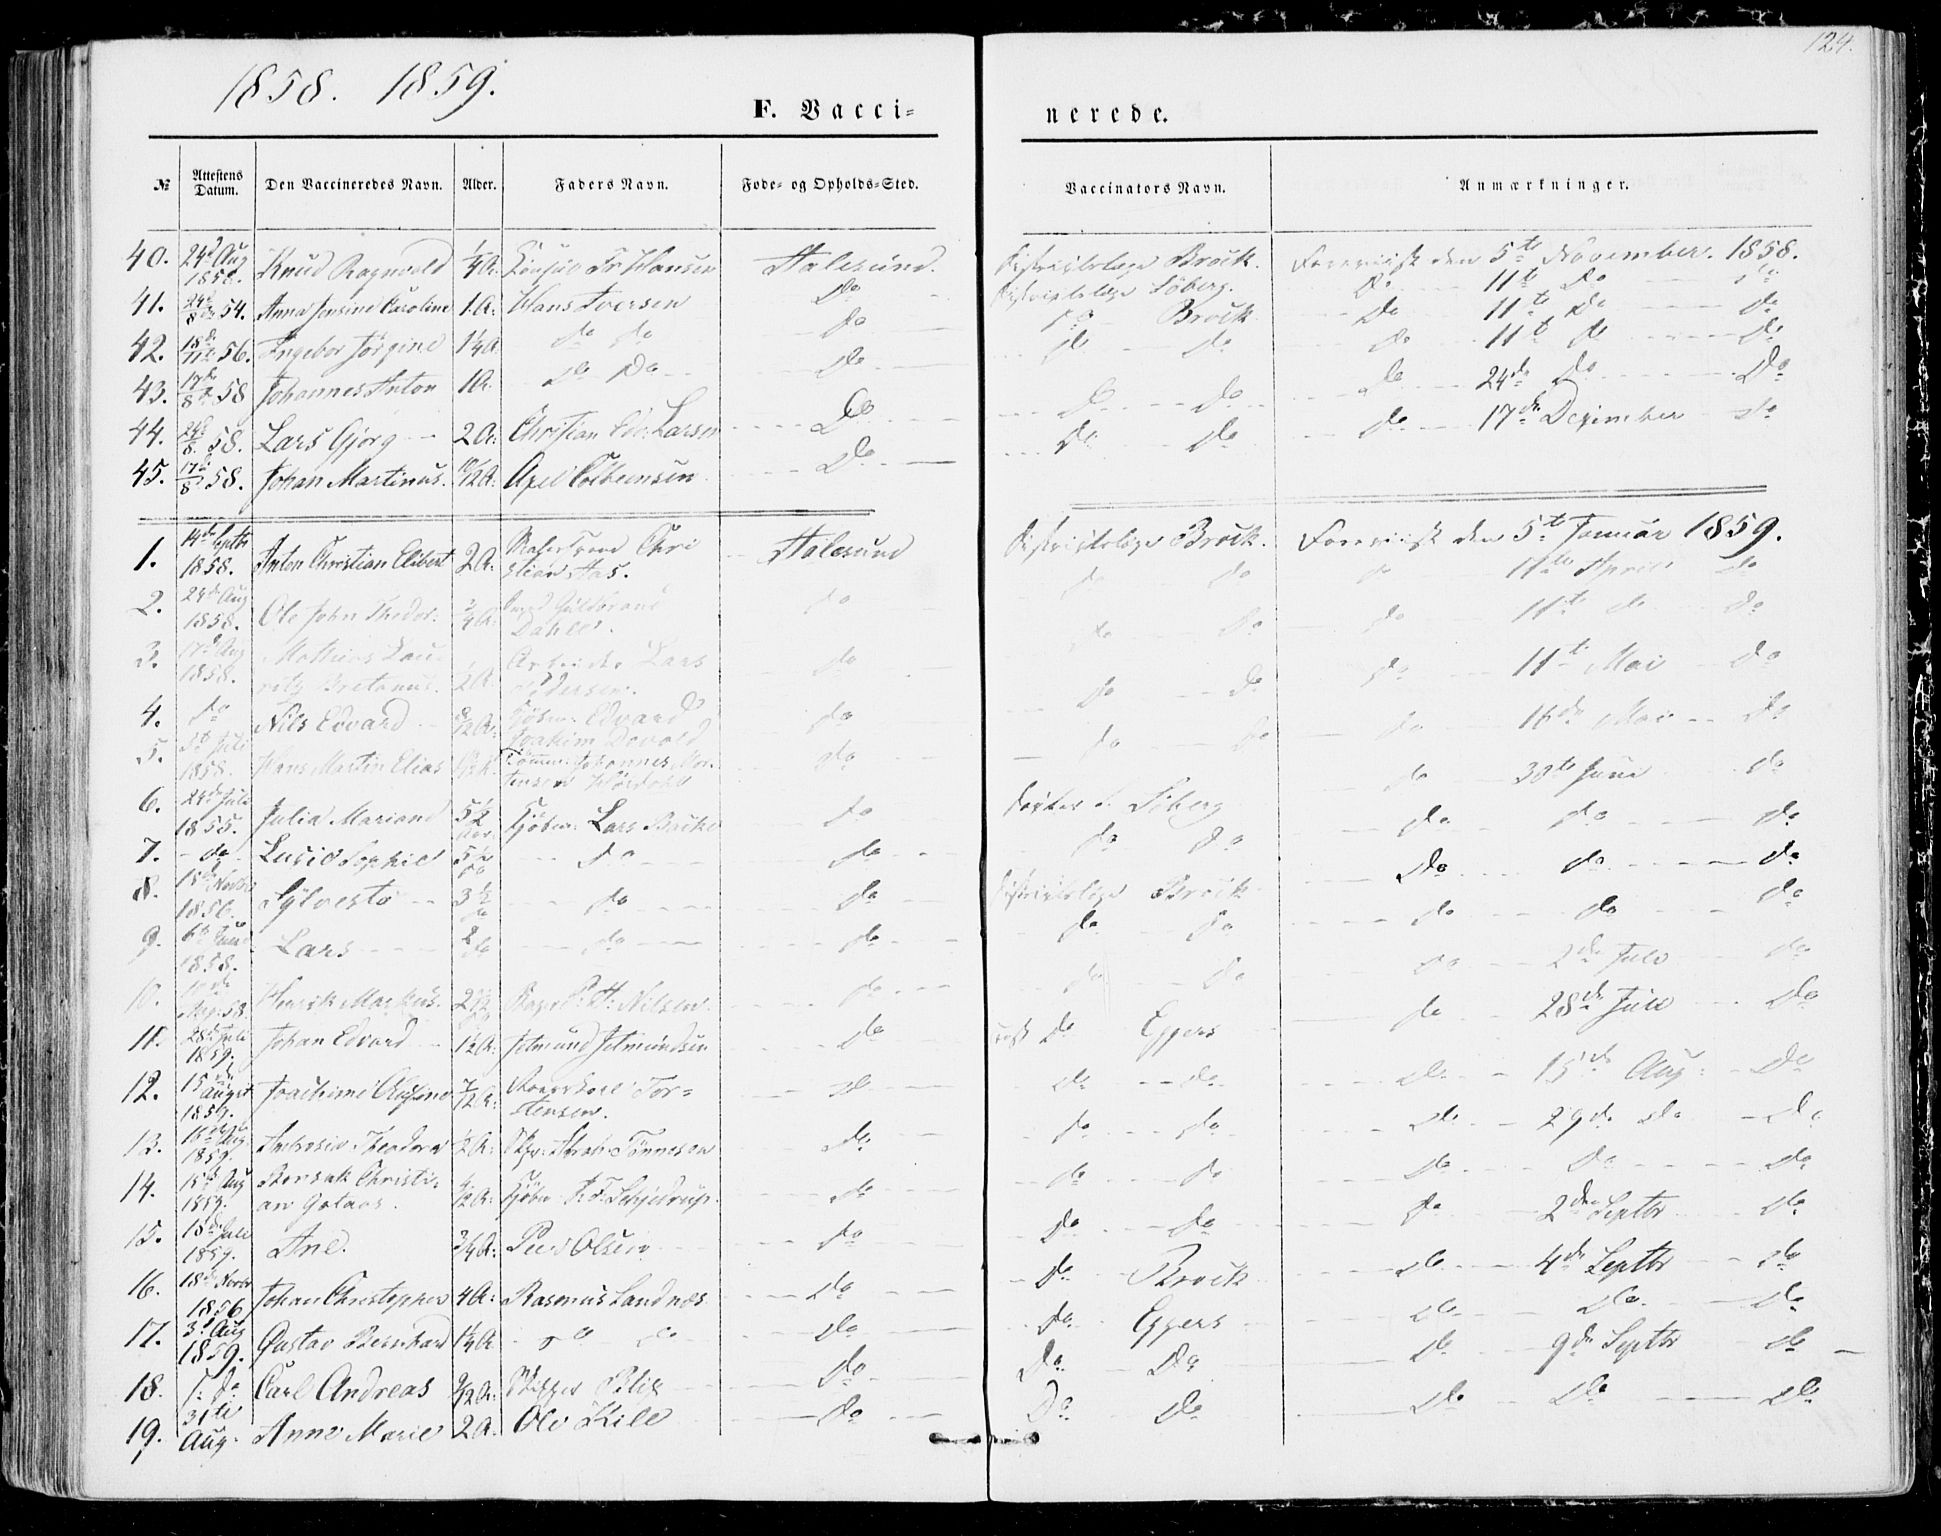 124.
1858. 1859.
F. Vacci= nerede.
№ Attestens Datum. Den Vaccineredes Navn. Alder. Faders Navn. Føde= og Opholds=Sted. Vaccinators Navn. Anmærkninger.
40. 24d Aug 1858. Knud Ragnvald 1/4 A. Consul Fr Hansen Aalesund. Distriktslæge Brock. Foreviist den 5te November. 1858.
41. 24d/8 54. Anna Jensine Caroline 1. A. Hans Iversen Do Distriktslæge Söberg. Do 11te Do do
42. 18d/11 56. Ingebor Jörgine 1 1/4 A. do do do Do Brock Do 11te Do do
43. 17d/8 58 Johannes Anton 1 A. Do Do Do do do do 11te do do
44. 24d/8 58. Lars Gjörg 2 A. Christian Edv. Larsen Do Do Do Do 24de Do Do
45. 17d/8 58. Johan Martinus. 10/12 A. Axel Colbeensen Do Do Do do 17de Dezember do
1. 14de Septbr 1858. Anton Christian Elibert 2 A. Christian Aas. Aalesund Distriktslæge Brock. Foreviist den 5te Januar 1859.
2. 24de Aug 1858. Ole John Thedor. 3/4 A. Guldbrand Dahle. do do do do 11te April do
3. 17d Aug 1858. Mathias Lauritz Bretanus. 1/2 A. Arbeider Lars Pedersen. do do do do 11te do do
4. do Nils Edvard 8/12 A. Kjöbm. Edvard Joakim Devold do do do do 11te Mai do
5. Juli 1858. Hans Martin Elias Tömm. Johannes do do do do 16de Mai do
6. 24de Juli 1855. Julia Mariane 5 1/2 Aar Kjöbm. Lars Backe do Doktor Söberg do 30te Juni do
7. do Lusie Sophie 5 1/2 do do do do do do do do
8. 15de Novbr 1856. Sylveste 3 1/2 do do do Distriktslæge Brock Do do do
9. 6te Juli 1858. Lars 2 do do do do do do do do
10. Aug. 58 Henrik Markus. 2 1/2 P. H. Nilsen. do do do do 2de July do
11. 28d Juli 1859. Johan Edvard 1 1/2 A. Jetmund Jetmundsen do do Eggers do 28de Juli Do
12. 15de Augst 1859. Joachime 7/12 A. Torstensen. do do do do 15de Aug. Do
13. 16de Aug 1859. Andrea Theodora 1/2 A. Tönnesen do do do do 29de do do
14. 15d Aug 1859. Christian 4/12 A. Kjöbm. P. F. Schjeldrup. do do do do Do do
15. 18de Juli 1859. Ane. 3/4 A. Peer Olsen do Do do do 2den Septbr do
16. 18d Novbr 1856 Johan Christopher 4 A. Rasmus Landnæs do Do Brock do 4de Septbr do
17. 3d Aug 1859. Gustav Bernhard 1 1/4 A do do do Do Eggers do do do
18. do Carl Andreas 9/12 A. Skipper Blix Do Do Do do 9de Septbr do
19. 31te Aug. Anne Marie 2 A. Ole Kile Do Do do do do do